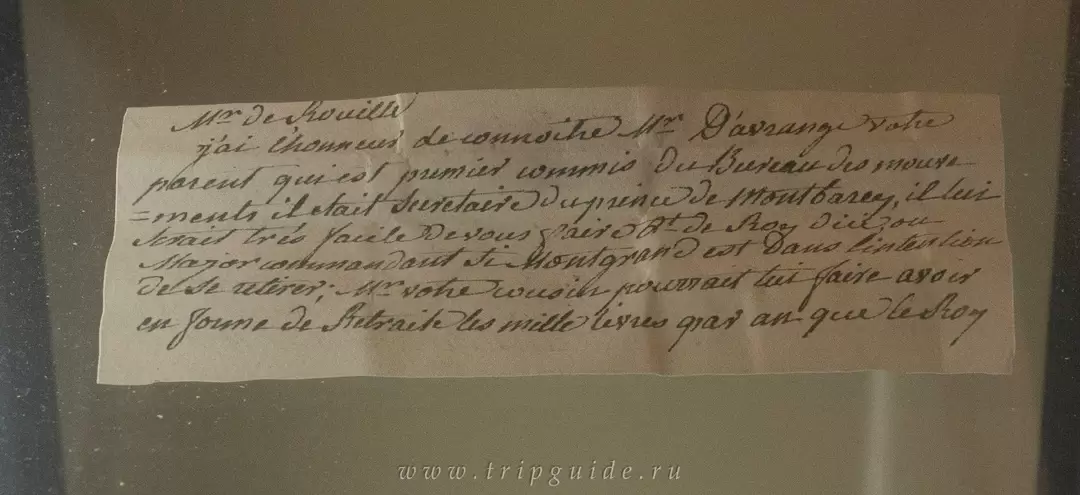 Mr de Rouille
j'ai l'honneur de connoitre Mr D'avrange votre
parent qui est premier commis du Bureau des mouve
=ments il etait Secretaire du prince de Montbarey, il lui
serait très facile de vous faire Lt de Roy d'ici, ou
Major commandant si Montgrand est dans l'intention
de se retirer; Mr votre cousin pourrait lui faire avoir
en forme de Retraite les mille livres par an que le Roy
www.tripguide.ru